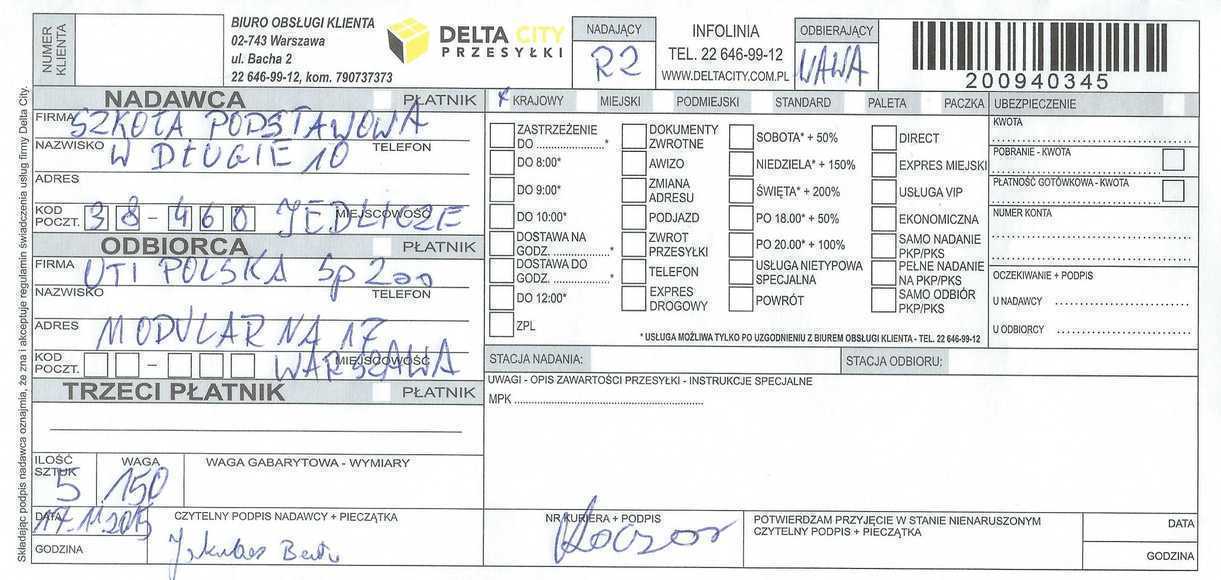 NUMER KLIENTA
BIURO OBSŁUGI KLIENTA
02-743 Warszawa
ul. Bacha 2
22 646-99-12, kom. 790737373
DELTA CITY
PRZESYŁKI
NADAJĄCY
R2
INFOLINIA
TEL. 22 646-99-12
WWW.DELTACITY.COM.PL
ODBIERAJĄCY
WAWA
200940345
Składając podpis nadawca oznajmia, że zna i akceptuje regulamin świadczenia usług firmy Delta City.
NADAWCA PŁATNIK
FIRMA SZKOŁA PODSTAWOWA
NAZWISKO W DŁUGIE 10 TELEFON
ADRES
KOD POCZT. 38-460 MIEJSCOWOŚĆ JEDLICZE
ODBIORCA PŁATNIK
FIRMA UTI POLSKA Sp Zoo
NAZWISKO TELEFON
ADRES MODULARNA 17
KOD POCZT. - MIEJSCOWOŚĆ WARSZAWA
TRZECI PŁATNIK PŁATNIK
ILOŚĆ SZTUK 5
WAGA 150
WAGA GABARYTOWA - WYMIARY
DATA 17.11.2015
GODZINA
CZYTELNY PODPIS NADAWCY + PIECZĄTKA
x KRAJOWY MIEJSKI PODMIEJSKI STANDARD PALETA PACZKA
ZASTRZEŻENIE DO ....................*
DO 8:00*
DO 9:00*
DO 10:00*
DOSTAWA NA GODZ. ....................*
DOSTAWA DO GODZ. ....................*
DO 12:00*
ZPL
DOKUMENTY ZWROTNE
AWIZO
ZMIANA ADRESU
PODJAZD
ZWROT PRZESYŁKI
TELEFON
EXPRES DROGOWY
SOBOTA* + 50%
NIEDZIELA* + 150%
ŚWIĘTA* + 200%
PO 18.00* + 50%
PO 20.00* + 100%
USŁUGA NIETYPOWA SPECJALNA
POWRÓT
DIRECT
EXPRES MIEJSKI
USŁUGA VIP
EKONOMICZNA
SAMO NADANIE PKP/PKS
PEŁNE NADANIE NA PKP/PKS
SAMO ODBIÓR PKP/PKS
* USŁUGA MOŻLIWA TYLKO PO UZGODNIENIU Z BIUREM OBSŁUGI KLIENTA - TEL. 22 646-99-12
UBEZPIECZENIE
KWOTA
POBRANIE - KWOTA
PŁATNOŚĆ GOTÓWKOWA - KWOTA
NUMER KONTA
OCZEKIWANIE + PODPIS
U NADAWCY
U ODBIORCY
STACJA NADANIA:
STACJA ODBIORU:
UWAGI - OPIS ZAWARTOŚCI PRZESYŁKI - INSTRUKCJE SPECJALNE
MPK
NR KURIERA + PODPIS
POTWIERDZAM PRZYJĘCIE W STANIE NIENARUSZONYM
CZYTELNY PODPIS + PIECZĄTKA
DATA
GODZINA